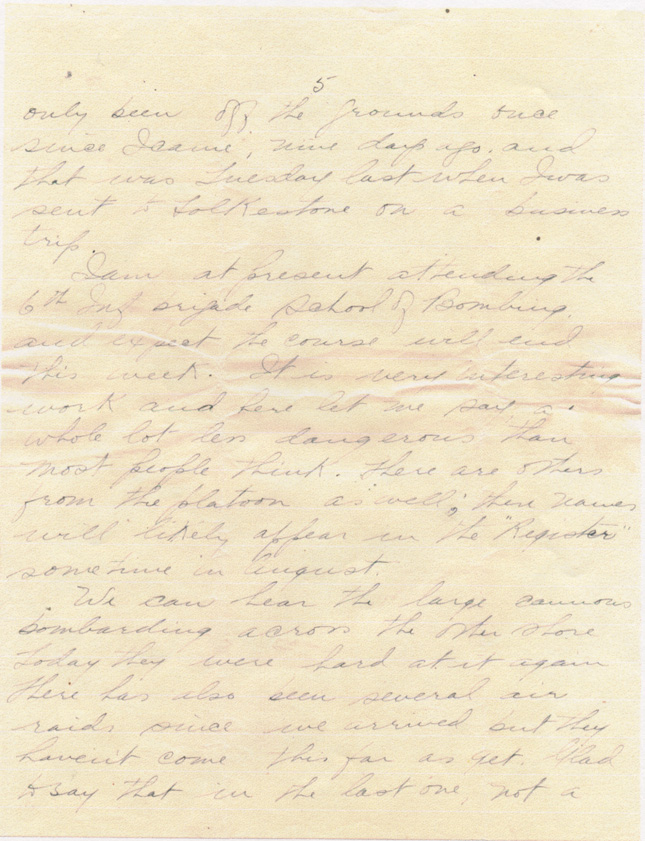 5
only been off the grounds once
since I came, nine days ago. and
that was Tuesday last when I was
sent to Folkestone on a business
trip.
I am at present attending the
6th Inf Brigade School of Bombing.
and expect the course will end
this week. It is very interesting
work and here let me say, a
whole lot less dangerous than
most people think. There are others
from the platoon as well; there names
will likely appear in the "Register"
sometime in August.
We can hear the large cannons
bombarding across the other shore
today they were hard at it again
there has also been several air
raids since we arrived but they
haven't come this far as yet. Glad
to say that in the last one, not a